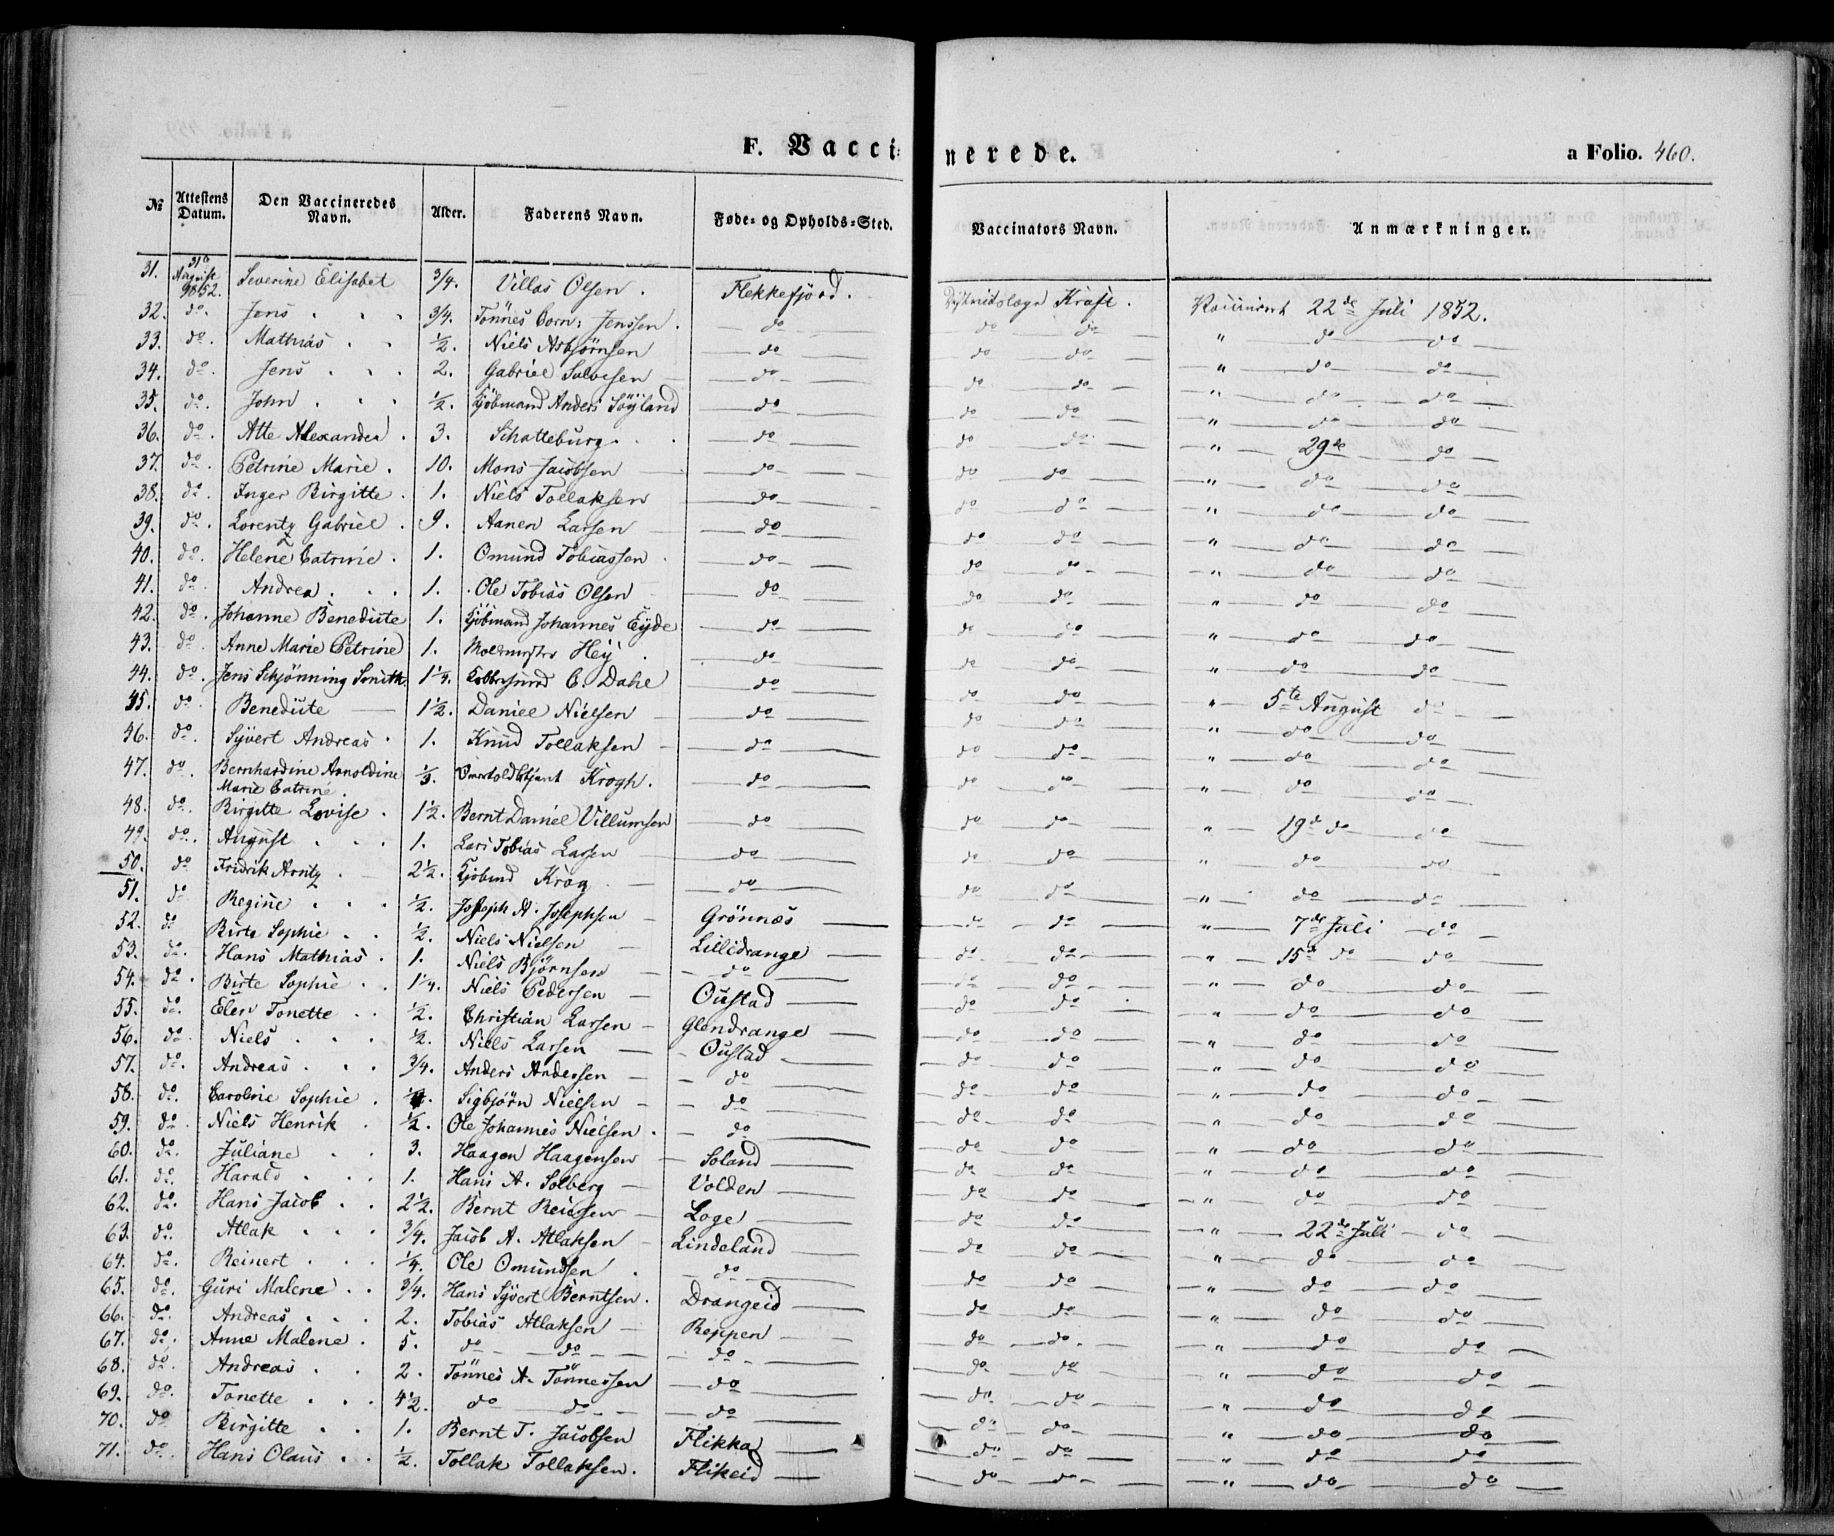 F. Vaccinerede. a Folio. 460.
№ Attestens Datum. Den Vaccineredes Navn. Alder. Faderens Navn. Føde- og Opholds-Sted. Vaccinators Navn. Anmærkninger.
31. 31te August 1852. Severine Elisabet 3/4. Villas Olsen. Flekkefjord. Distrikslæge Kraft. Vaccineret 22de Juli 1852.
32. do. Jens 3/4. Tönnes Corn: Jenssen. do do do " do do
33. do. Mathias 1/2. Niels Asbjørnsen do do do " do do
34. do. Jens 2. Gabriel Salvesen do do do " do do
35. do. John 1/2. Kjöbmand Anders Söyland do do do " do do
36. do. Atte Alexandra 3. Schatteburg do do do " 29de do
37. do. Petrine Marie. 10. Mons Jacobsen do do do " do do
38. do. Inger Birgitte. 1. Niels Tollaksen do do do " do do
39. do. Lorentz Gabriel. 9. Aanen Larsen do do do " do do
40. do. Helene Catrine. 1. Omund Tobiassen. do do do " do do
41. do. Andrea 1. Ole Tobias Olsen do do do " do do
42. do. Johanne Benedicte 1. Kjöbmand Johannes Eyde do do do " do do
43. do. Anne Marie Petrine 1. Hey do do do " do do
44. do. Jens Schjönning Smith. 1 1/4. C. Dahl do do do " 5te August do
45. do. Benedicte 1 1/2. Daniel Nielsen do do do " do do
46. do. Syvert Andreas 1. Knud Tollaksen do do do " do do
47. do. Bernhardine Arnoldine Marie Catrine. 1/3. Krogh. do do do " do do
48. do. Birgitte Lovise. 1 1/2. Bernt Daniel Villumsen do do do " 19de do do
49. do. August 1. Lars Tobias Larsen do do do " do do
50. do Fridrik Arntz. 2 1/2. Kjöbmd Krog. do do do " do do
51. do Regine 1/2. Joseph A. Josephsen Grönnæs do do " 7de Juli do
52. do Birte Sophie 1/2. Niels Nielsen Lilledrange do do " 15de do do
53. do. Hans Mathias. 1. Niels Björnsen do do do " do do
54. do. Birte Sophie 1 1/4. Niels Pedersen Oustad do do " do do
55. do. Elen Tonette 1/2. Christian Larsen Glendrange do do " do do
56. do. Niels 1/2. Niels Larsen Oustad do do " do do
57. do. Andreas 3/4. Anders Andersen do do do " do do
58. do. Caroline Sophie Sigbjörn Nielsen do do do " do do
59. do. Niels Henrik 1/2. Ole Johannes Nielsen. do do do " do do
60. do. Juliane 3. Haagen Haagensen Soland do do " do do
61. do. Harald 1. Hans A. Solberg Volden do do " do do
62. do. Hans Jacob 2 1/2. Bernt Reiersen Loge do do " 22de Juli do
63. do. Atlak 3/4. Jacob A. Atlaksen Lindeland do do " do do
64. do. Reinert 1/4. Ole Omundsen do do do " do do
65. do. Guri Malene 3/4. Hans Syvert Berntsen. Drangeid do do " do do
66. do. Andreas 2. Tobias Atlaksen Reppen do do " do do
67. do. Anne Malene. 5. do do do do do " do do
68. do. Andreas 2. Tönnes A. Tönnessen do do do " do do
69. do. Tonette 4 1/2. do do do do do " do do
70. do Birgitte 1. Bernt T. Jacobsen Flikka do do " do do
71. do. Hans Olaus 1/2. Tollak Tollaksen. Flikeid do do " do do